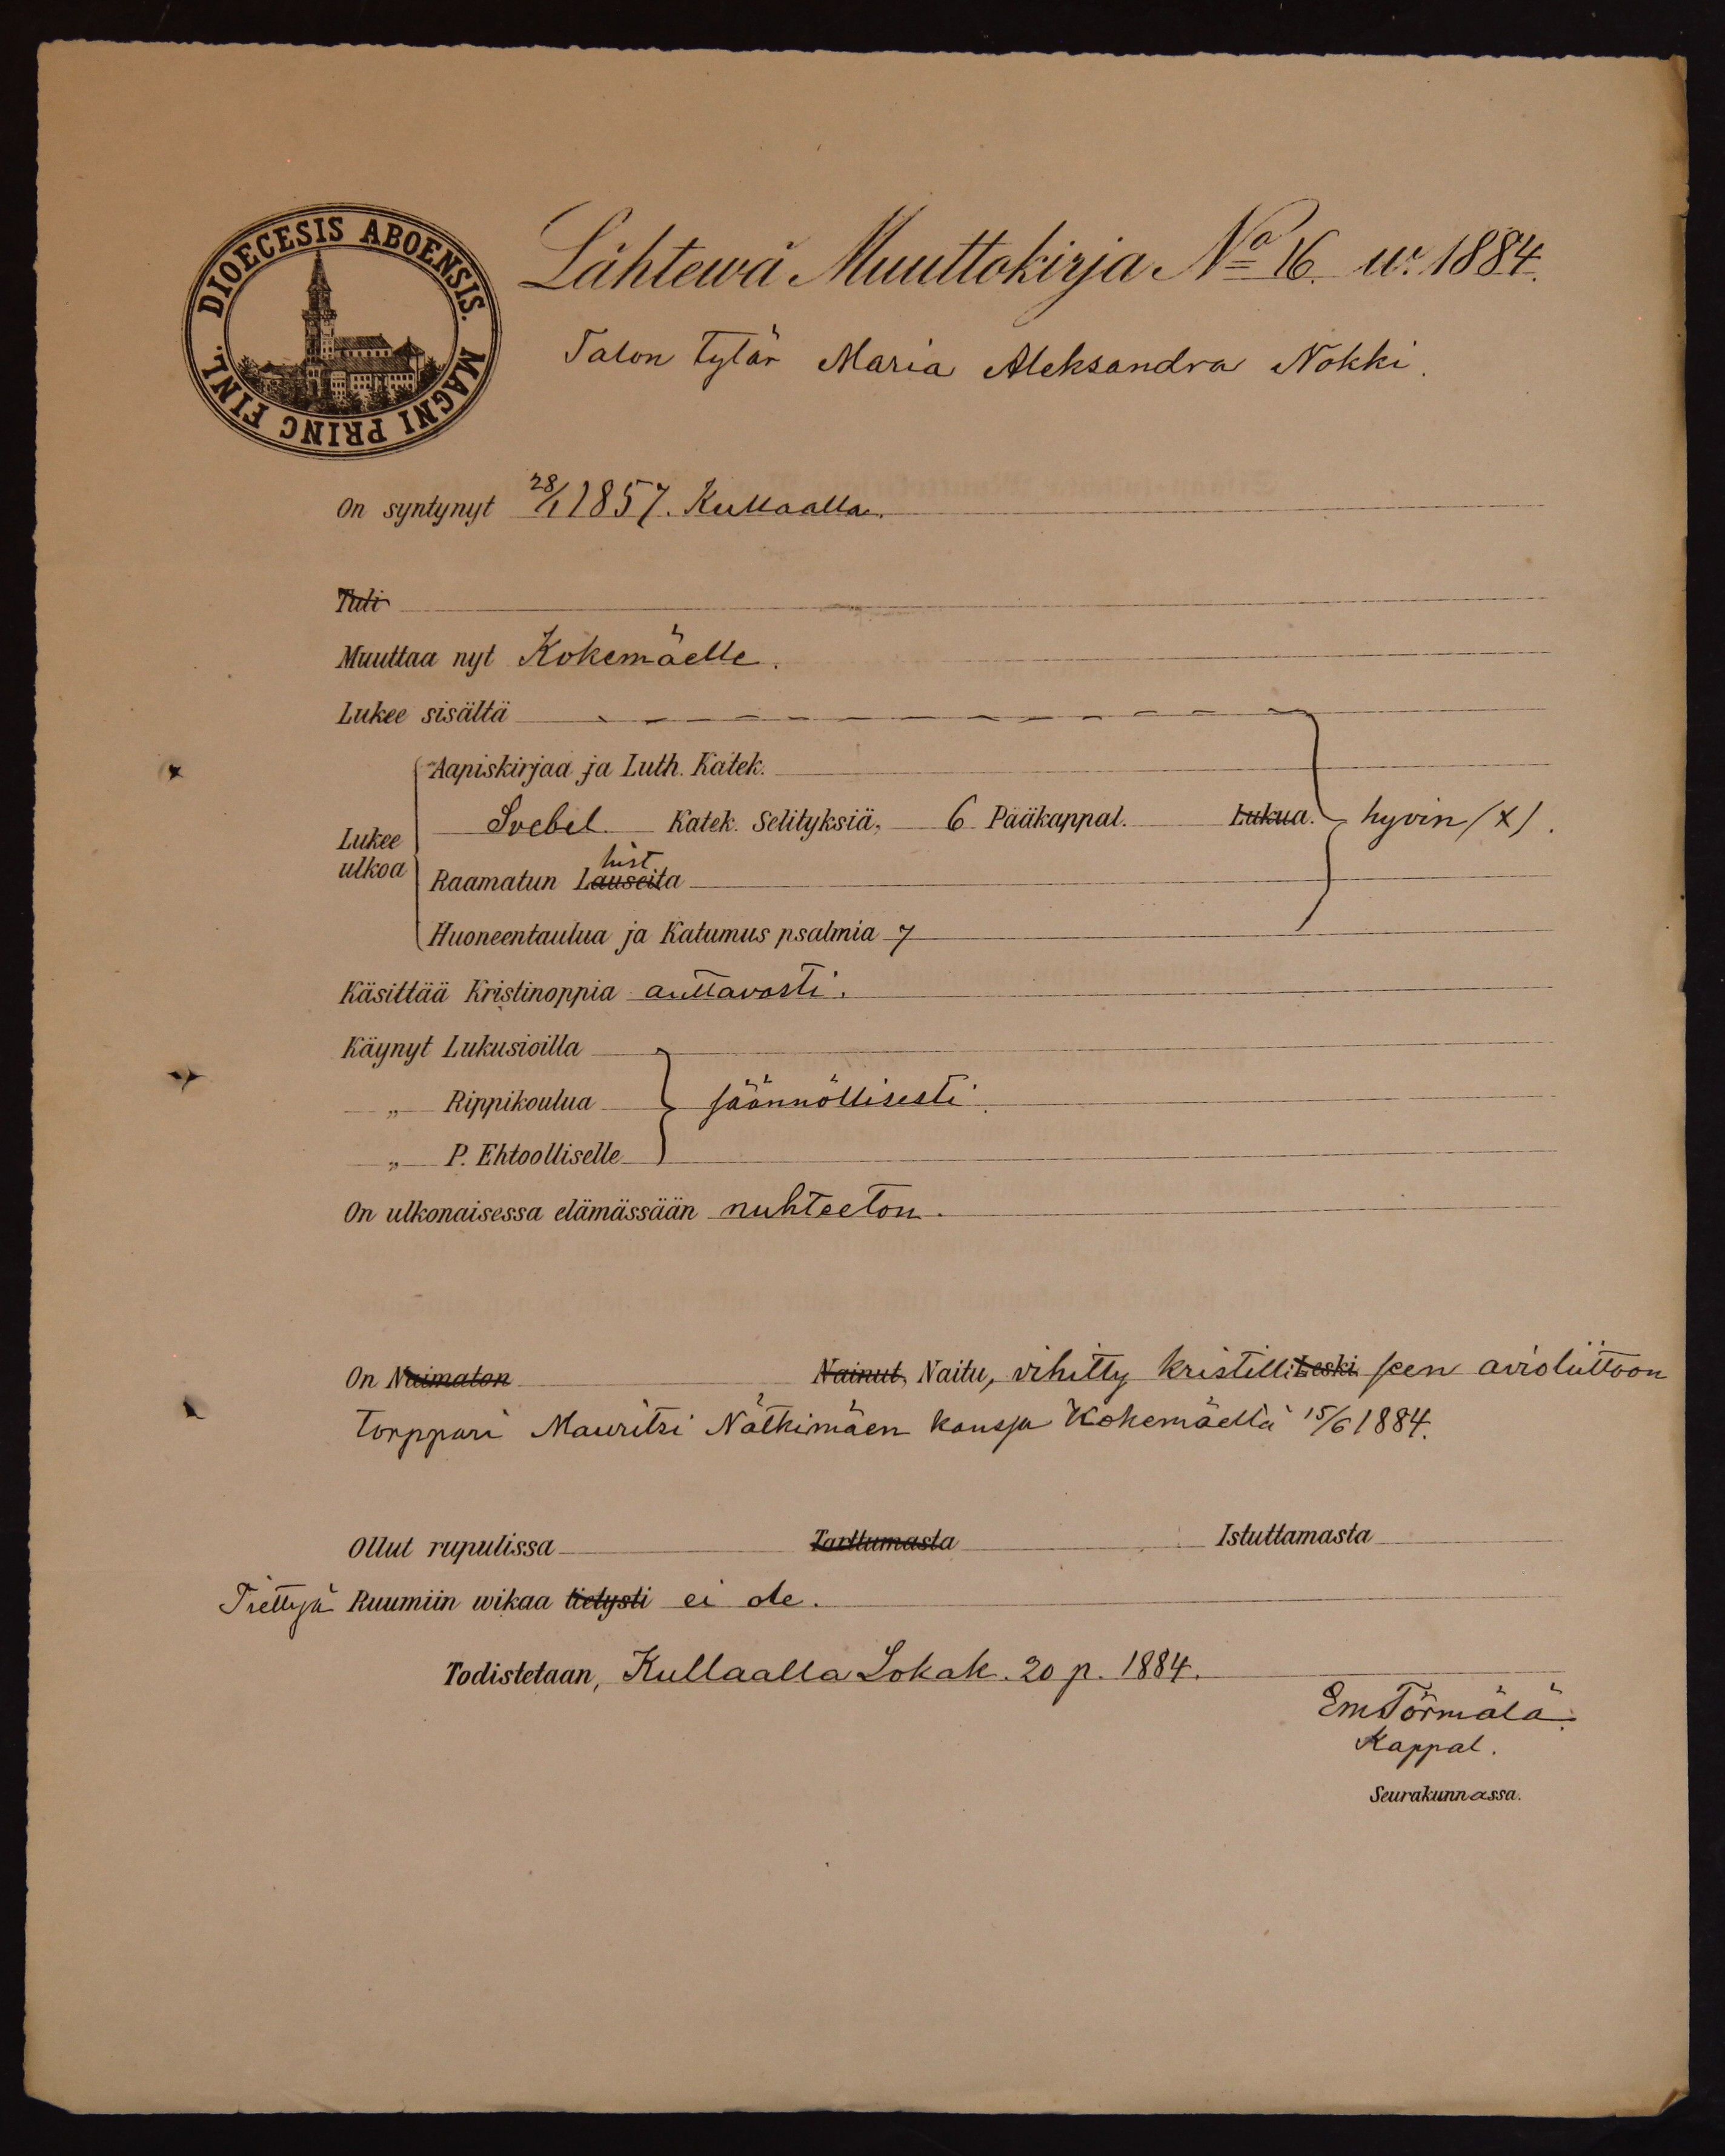 DIOECESIS ABOENSIS. MAGNI PRINC FINL.
Lähtewä Muuttokirja No 16. w. 1884.
Talon tytär Maria Aleksandra Nokki.
On syntynyt 28/1 1857. Kullaalla.
Tuli
Muuttaa nyt Kokemäelle.
Lukee sisältä
Aapiskirjaa ja Luth. Katek.
Lukee ulkoa
Svebel. Katek. Selityksiä, 6 Pääkappal. Lukua. hyvin (x).
hist
Raamatun Lauseita
Huoneentaulua ja Katumus psalmia 7
Käsittää Kristinoppia auttavasti.
Käynyt Lukusioilla
„ Rippikoulua säännöllisesti.
„ P. Ehtoolliselle
On ulkonaisessa elämässään nuhteeton.
On Naimaton Nainut, Naitu, vihitty kristilli Leski seen avioliittoon
torppari Mauritsi Nätkimäen kanssa Kokemäellä 15/6 1884.
Ollut rupulissa Tarttumasta Istuttamasta
Tiettyjä Ruumiin wikaa tietysti ei ole.
Todistetaan, Kullaalla Lokak. 20 p. 1884.
Em Törmälä.
Kappal.
Seurakunnassa.